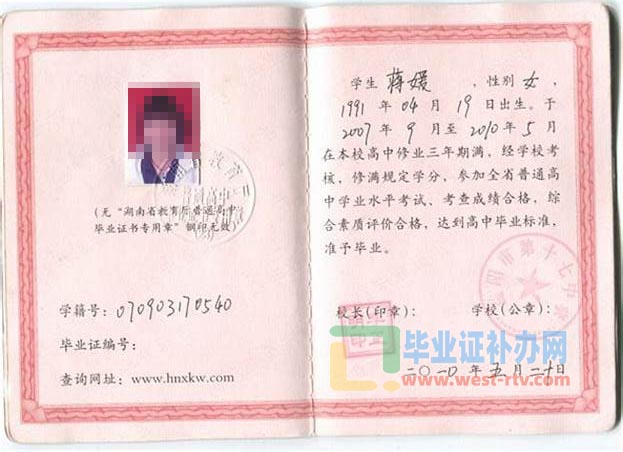 (无“湖南省教育厅普通高中
毕业证书专用章”钢印无效)
学籍号: 070903170540
毕业证编号:
查询网址: www.hnxkw.com
学生 蒋媛 , 性别 女 ,
1991 年 04 月 19 日出生。于
2007 年 9 月 至 2010 年 5 月
在本校高中修业三年期满, 经学校考
核, 修满规定学分, 参加全省普通高
中学业水平考试、考查成绩合格, 综
合素质评价合格, 达到高中毕业标准,
准予毕业。
阳市第十七中
校长(印章): 学校(公章):
毕业证补办网
www.west-rtv.com
二〇一〇 年 五 月 二十 日